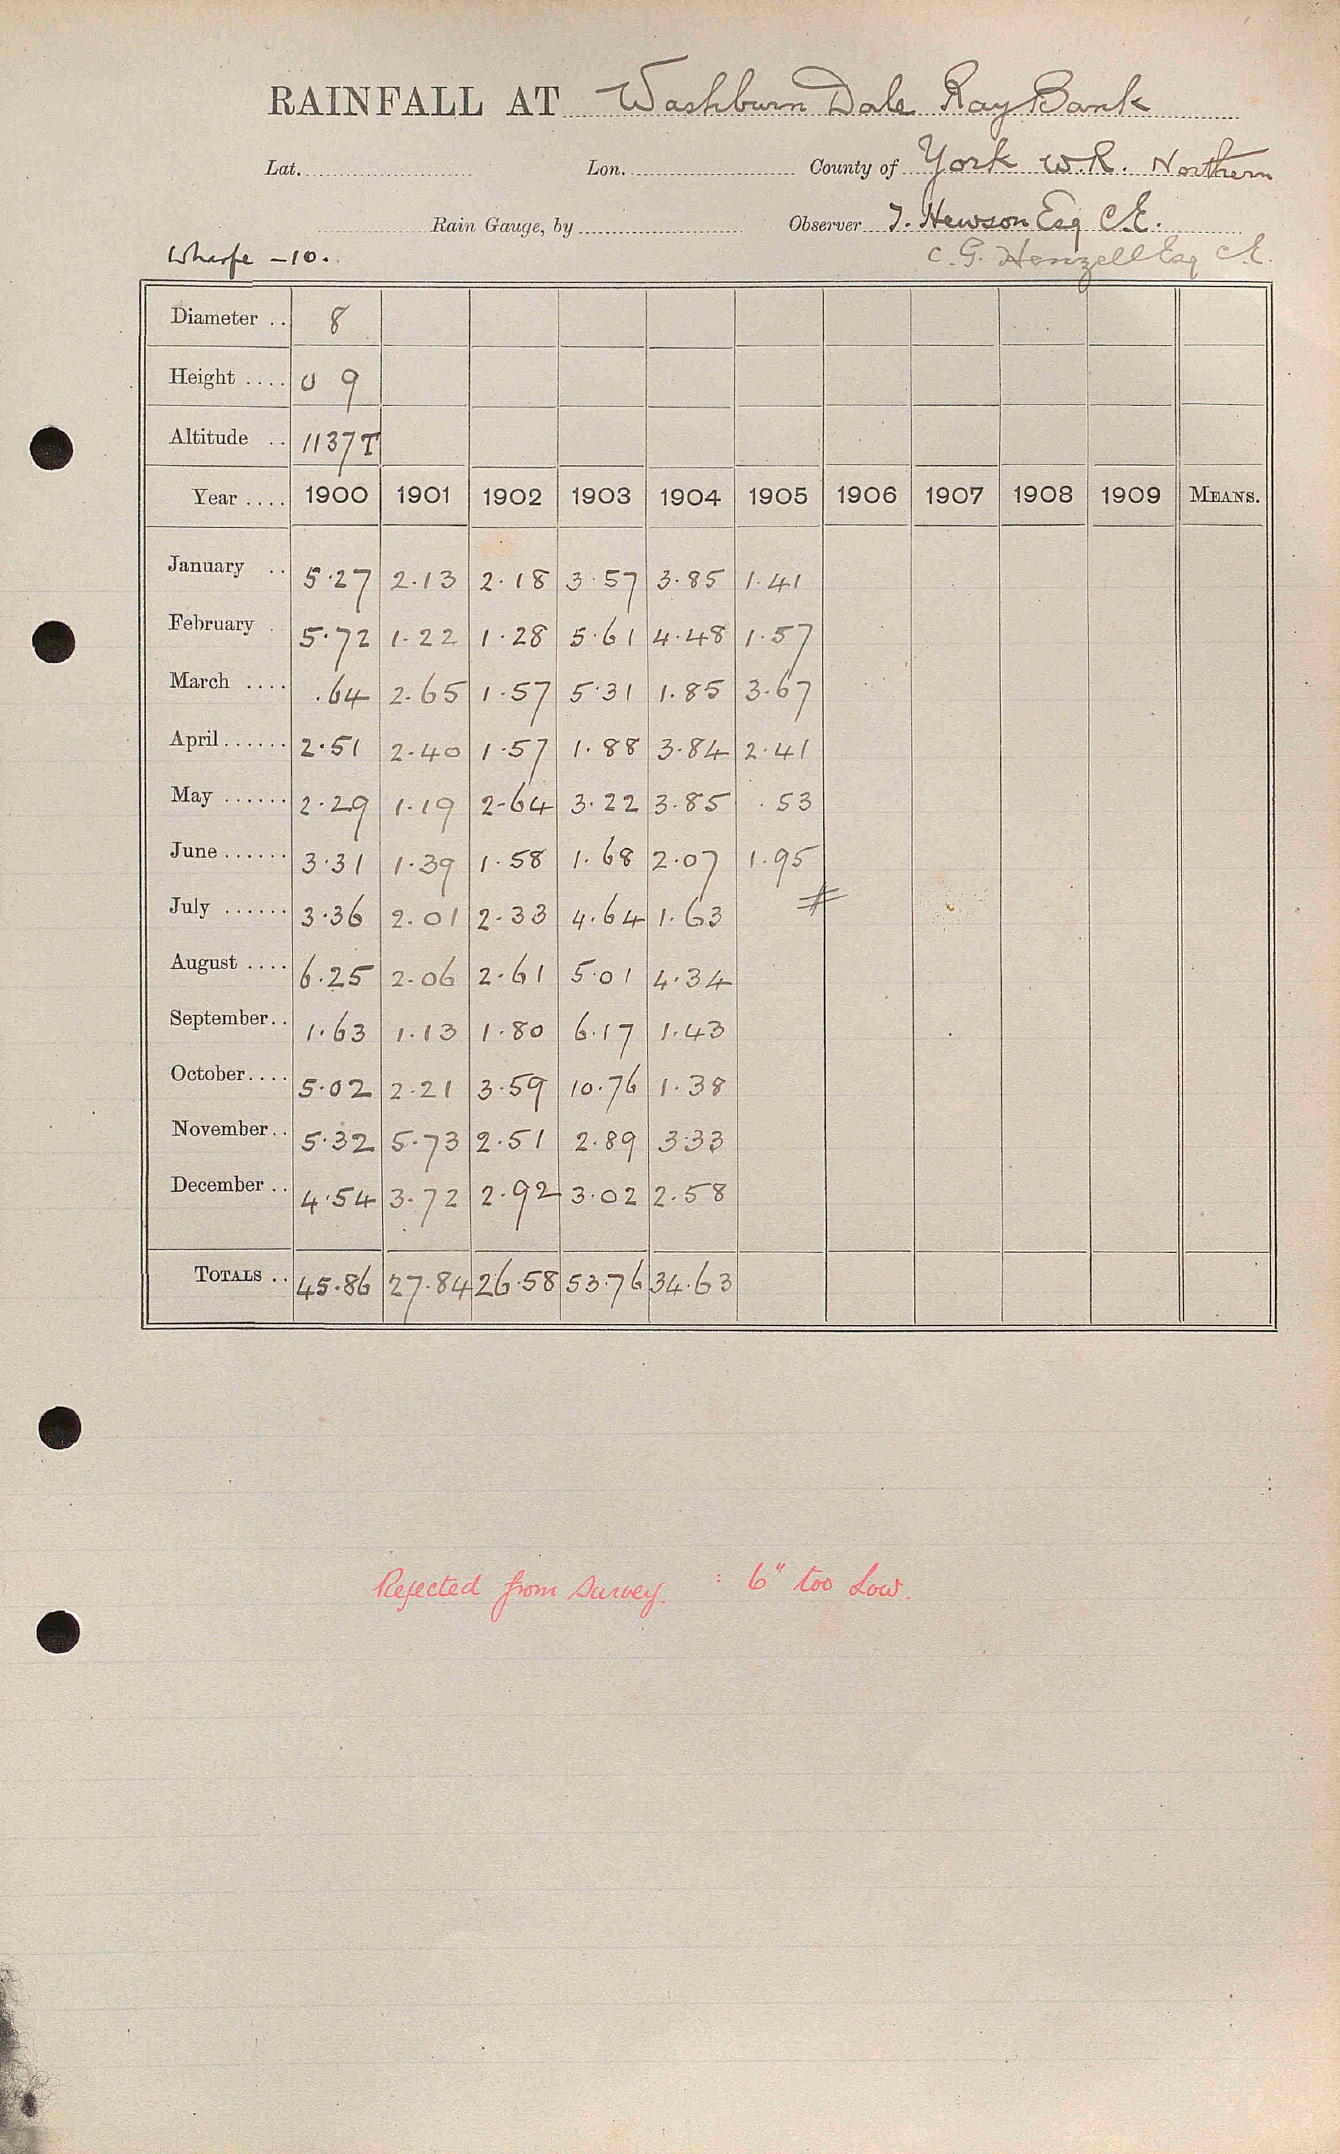 RAINFALL AT Washburn Dale Ray Bank
Lat. Lon. County of York W.R. Northern
Rain Gauge, by Observer T. Hewson Esq C.E.
Wharfe - 10. C. G. Henzell Esq C.E.
Diameter .. 8
Height .... 0 9
Altitude .. 1137 T
Year .... 1900 1901 1902 1903 1904 1905 1906 1907 1908 1909 MEANS.
January .. 5.27 2.13 2.18 3.57 3.85 1.41
February .. 5.72 1.22 1.28 5.61 4.48 1.57
March .... .64 2.65 1.57 5.31 1.85 3.67
April ...... 2.51 2.40 1.57 1.88 3.84 2.41
May ...... 2.29 1.19 2.64 3.22 3.85 .53
June ...... 3.31 1.39 1.58 1.68 2.07 1.95
July ...... 3.36 2.01 2.33 4.64 1.63
August .... 6.25 2.06 2.61 5.01 4.34
September .. 1.63 1.13 1.80 6.17 1.43
October .... 5.02 2.21 3.59 10.76 1.38
November .. 5.32 5.73 2.51 2.89 3.33
December .. 4.54 3.72 2.92 3.02 2.58
TOTALS .. 45.86 27.84 26.58 53.76 34.63
Rejected from survey. : 6" too low.